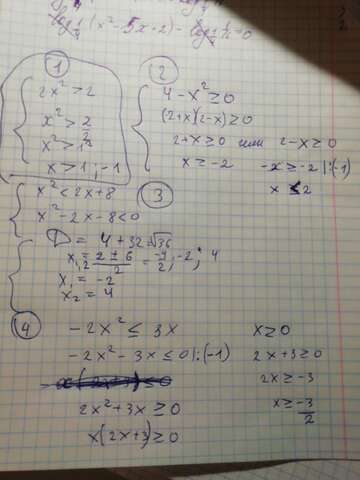 log 1/4 (x²-5x-2) - log 1/4
①
2x² > 2
x² > 2/2
x² > 1
x > 1; -1
②
4 - x² ≥ 0
(2+x)(2-x) ≥ 0
2+x ≥ 0 или 2-x ≥ 0
x ≥ -2 -x ≥ -2 |:(-1)
x ≤ 2
③
x² < 2x+8
x² - 2x - 8 < 0
D = 4 + 32 = √36
x₁,₂ = 2 ± 6 / 2 = -4/2; -2; 4
x₁ = -2
x₂ = 4
④
-2x² ≤ 3x x ≥ 0
-2x² - 3x ≤ 0 |:(-1) 2x+3 ≥ 0
2x ≥ -3
2x² + 3x ≥ 0 x ≥ -3/2
x(2x+3) ≥ 0